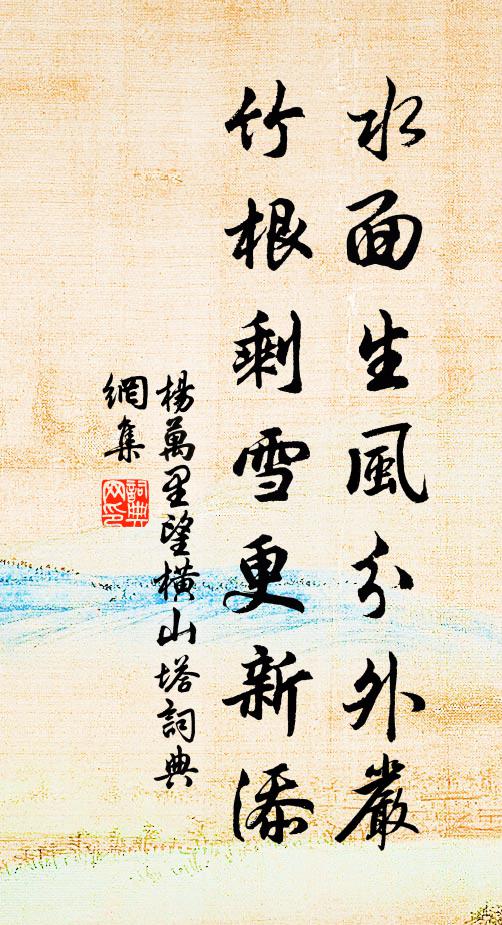 水面生風分外嚴
竹根剩雪更新添
楊萬里望橫山塔詞典
網集
詞典網印